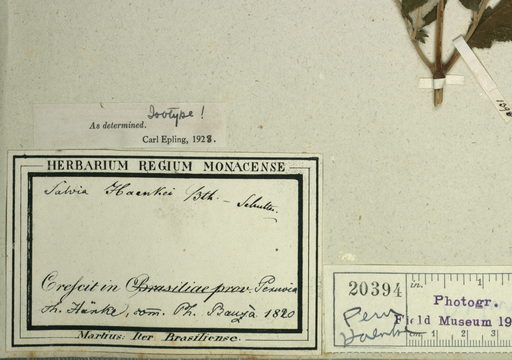 Isotype!
As determined.
Carl Epling, 1928.
HERBARIUM REGIUM MONACENSE
Salvia Haenkei Bth. –
Crescit in Brasiliae prov. Peruvia
Th. Hänke, com. Ph. Bauzà 1820
Martius: Iter Brasiliense.
20394
Peru
Haenke
in. 1
Photogr.
Field Museum 19
1 2 3